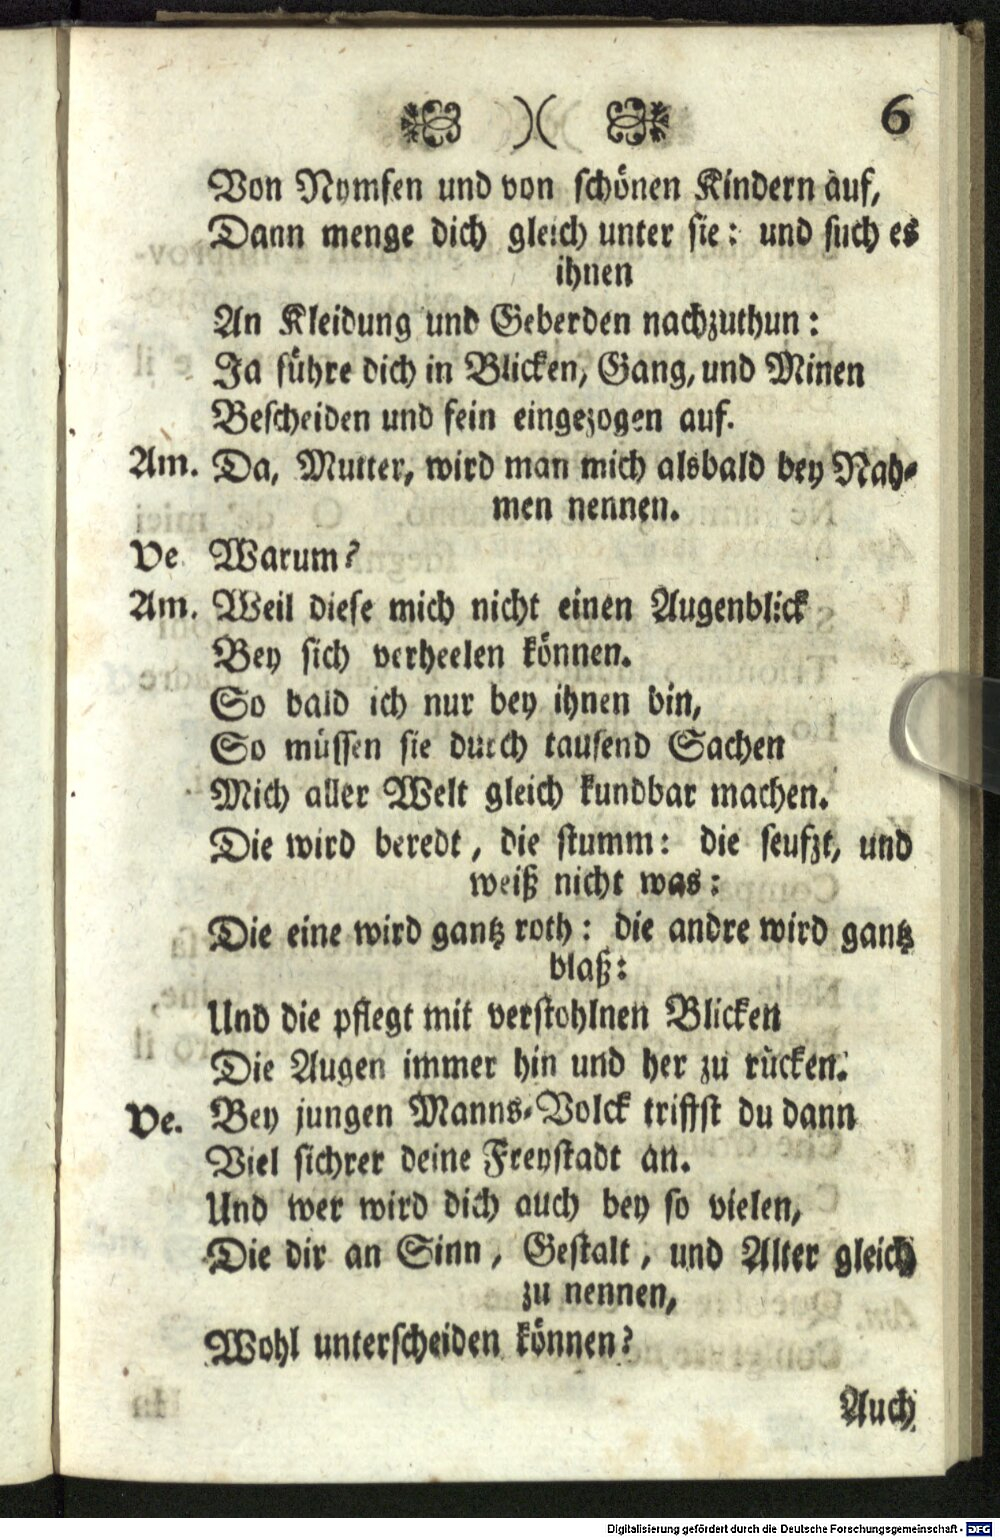 6
Von Nymfen und von schönen Kindern auf,
Dann menge dich gleich unter sie: und such es
ihnen
An Kleidung und Geberden nachzuthun:
Ja führe dich in Blicken, Gang, und Minen
Bescheiden und fein eingezogen auf.
Am. Da, Mutter, wird man mich alsbald bey Nah-
men nennen.
Ve Warum?
Am. Weil diese mich nicht einen Augenblick
Bey sich verheelen können.
So bald ich nur bey ihnen bin,
So müssen sie durch tausend Sachen
Mich aller Welt gleich kundbar machen.
Die wird beredt, die stumm: die seufzt, und
weiß nicht was:
Die eine wird gantz roth: die andre wird gantz
blaß:
Und die pflegt mit verstohlnen Blicken
Die Augen immer hin und her zu rücken.
Ve. Bey jungen Manns-Volck triffst du dann
Viel sichrer deine Freystadt an.
Und wer wird dich auch bey so vielen,
Die dir an Sinn, Gestalt, und Alter gleich
zu nennen,
Wohl unterscheiden können?
Auch
Digitalisierung gefördert durch die Deutsche Forschungsgemeinschaft - DFG